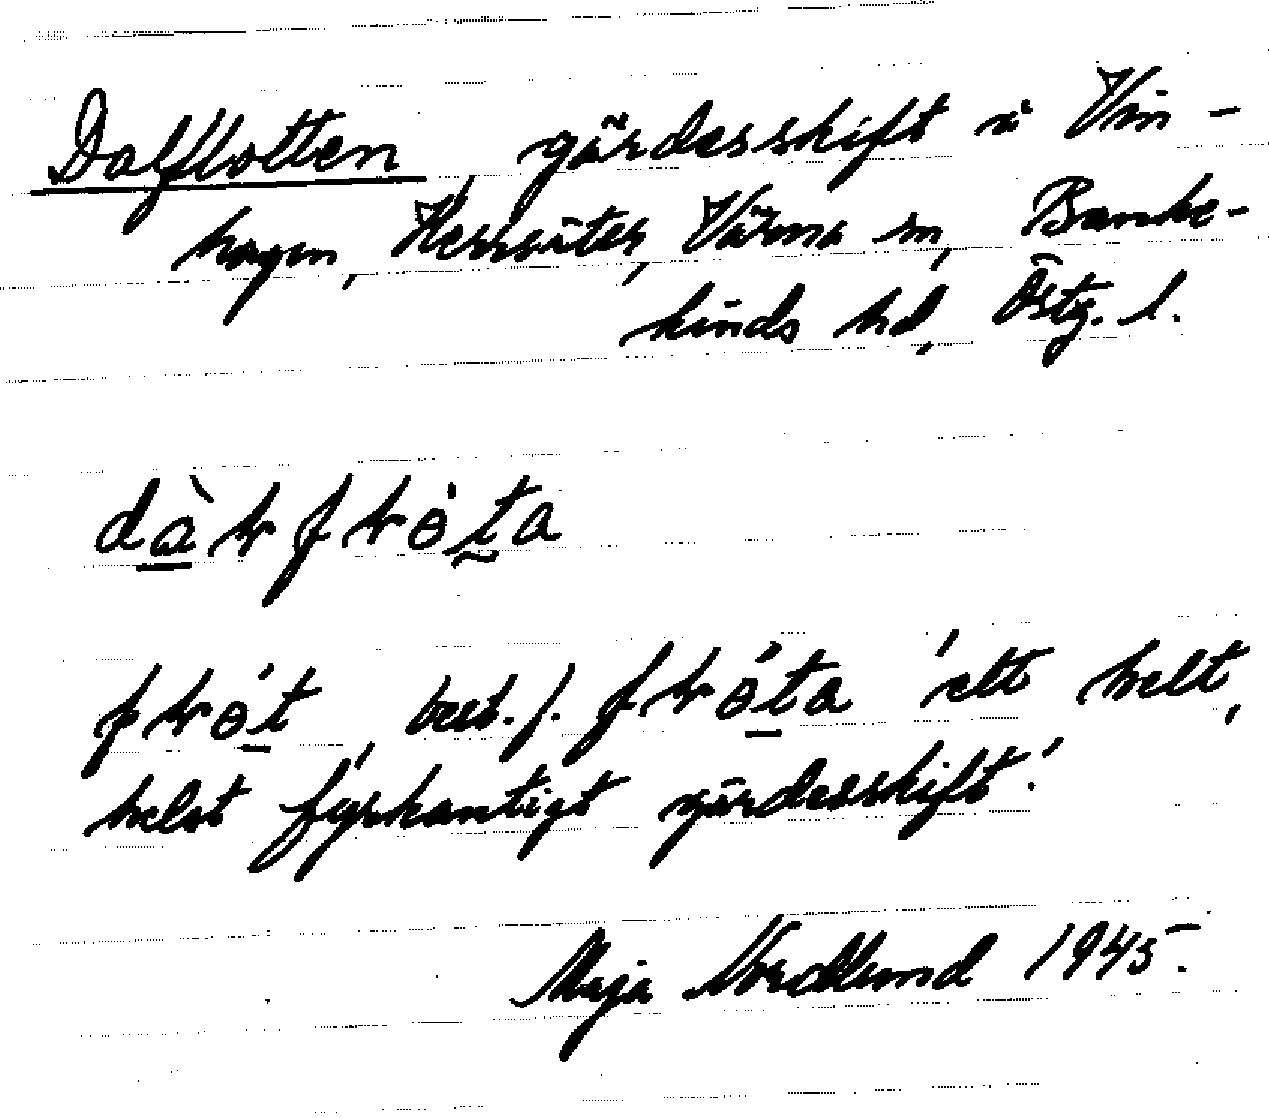 Dalflotten, gärdesskift i Vin-
hagen, Herrsäter, Värna sn, Banke-
kinds hd, Östg. l.
flɵ́t, best. f. flɵ́ta 'ett helt,
helst fyrkantigt gärdesskift.'
Maja Nordlund 1945.